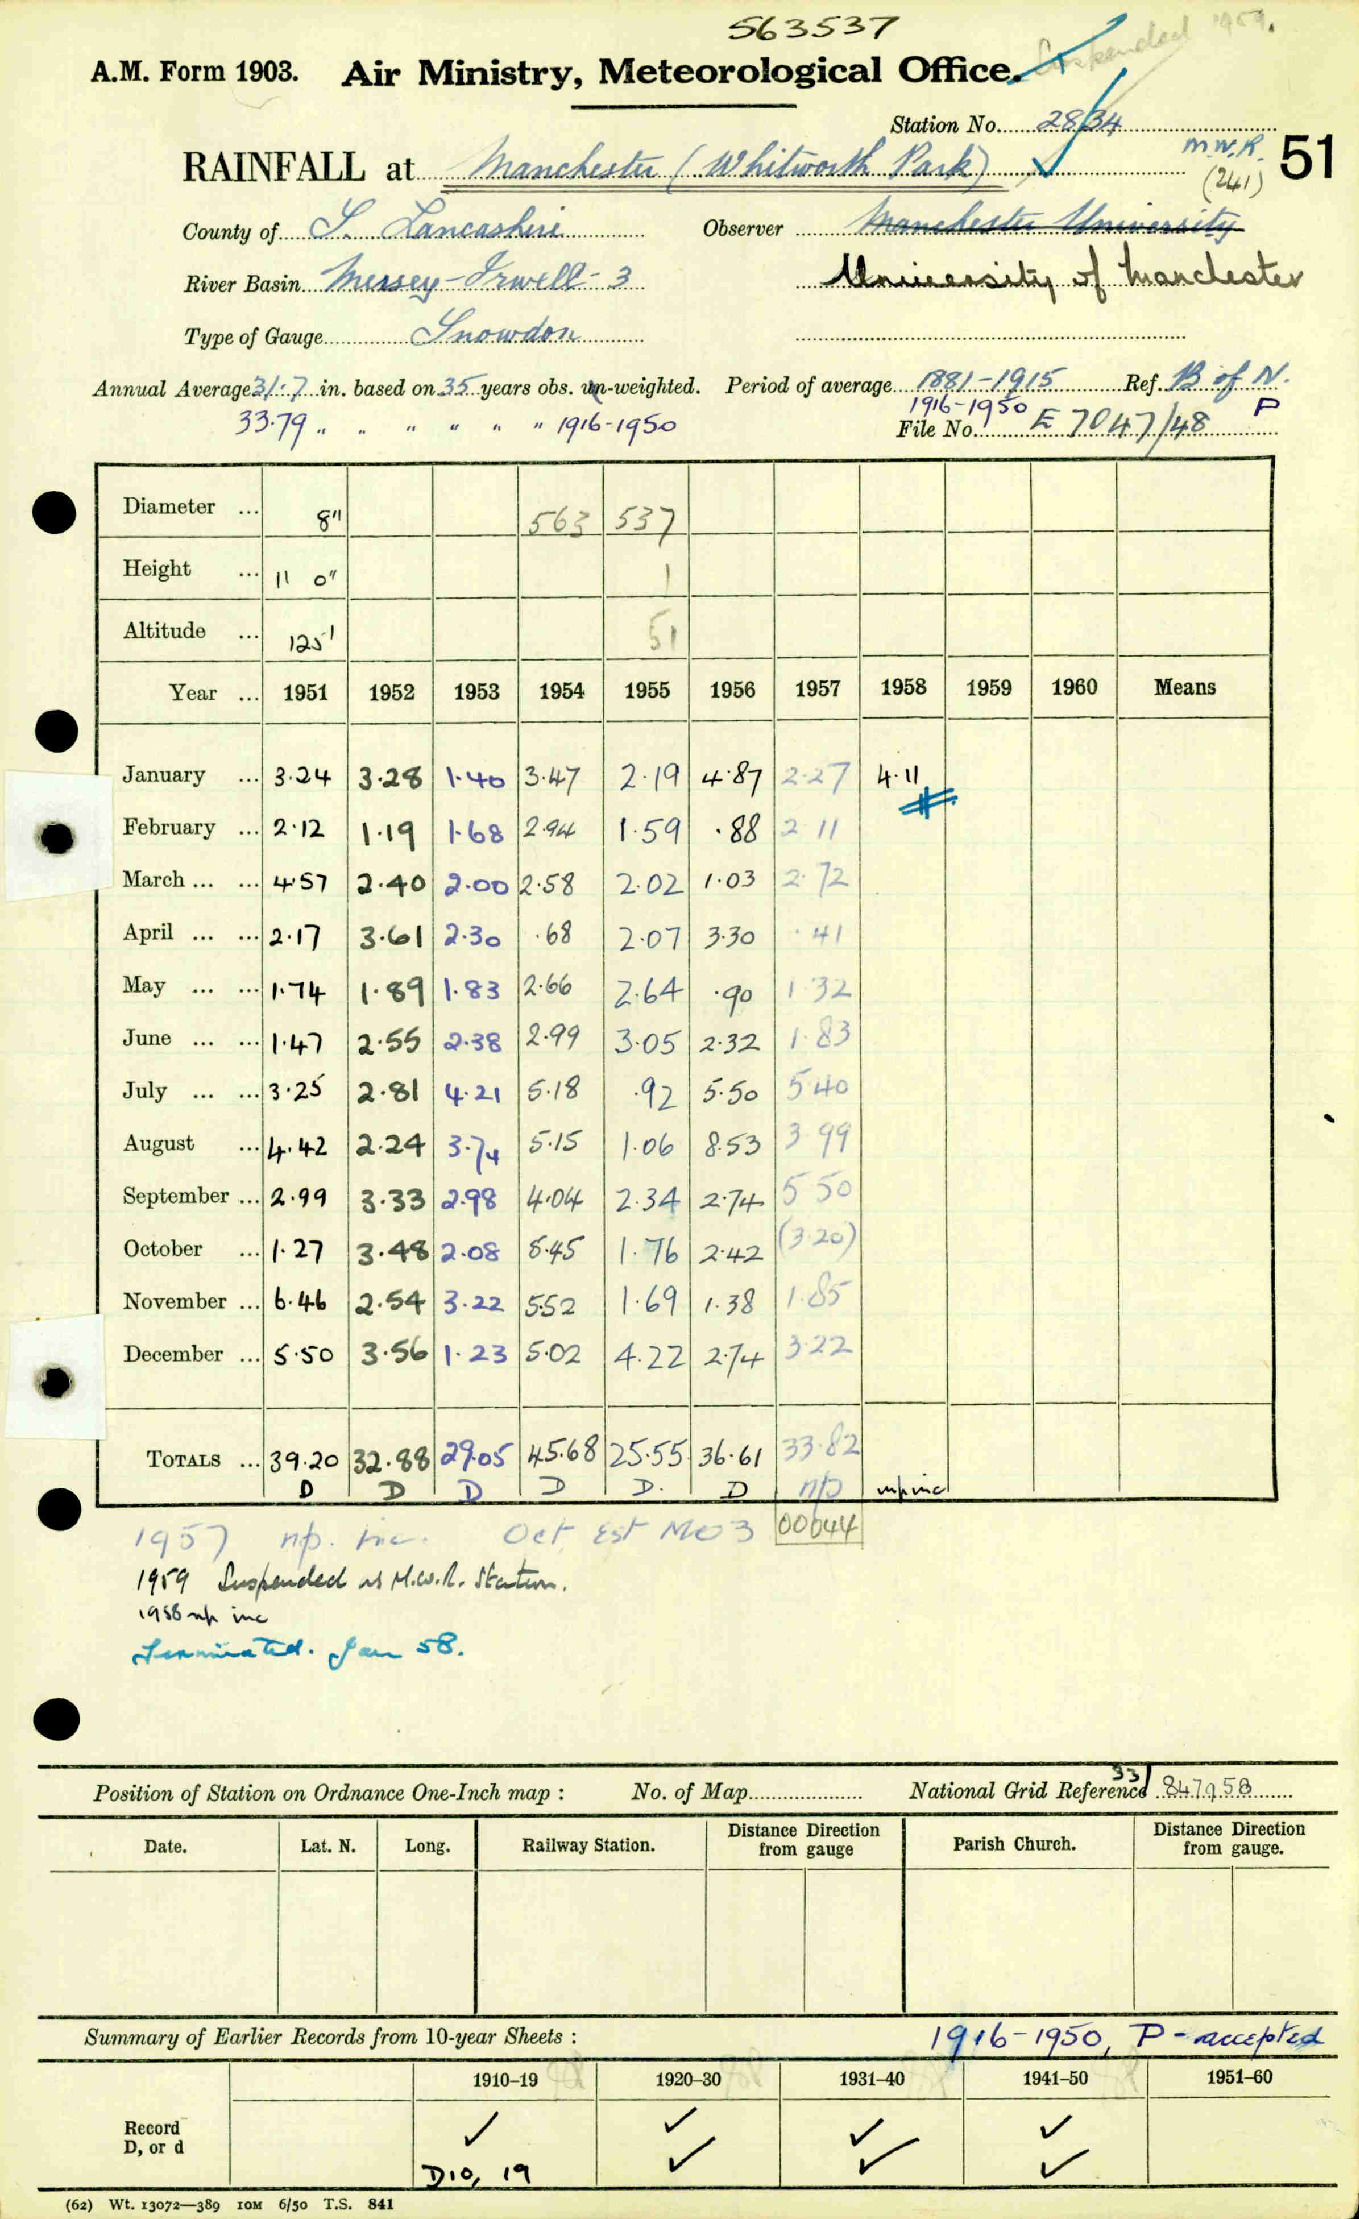 563537
Suspended 1959.
A.M. Form 1903. Air Ministry, Meteorological Office.
Station No. 2834
RAINFALL at Manchester (Whitworth Park) M.W.R. (241) 51
County of S. Lancashire Observer Manchester University
River Basin Mersey-Irwell-3 University of Manchester
Type of Gauge Snowdon
Annual Average 31.7 in. based on 35 years obs. un-weighted. Period of average 1881-1915 Ref. B of N.
33.79 " " " " " " 1916-1950 1916-1950 P
File No. E 7047/48
Diameter ... 8" 563 537
Height ... 1' 0" 1
Altitude ... 125' 51
Year ... 1951 1952 1953 1954 1955 1956 1957 1958 1959 1960 Means
January ... 3.24 3.28 1.40 3.47 2.19 4.87 2.27 4.11
February ... 2.12 1.19 1.68 2.94 1.59 .88 2 11
March ... ... 4.57 2.40 2.00 2.58 2.02 1.03 2.72
April ... ... 2.17 3.61 2.30 .68 2.07 3.30 .41
May ... ... 1.74 1.89 1.83 2.66 2.64 .90 1.32
June ... ... 1.47 2.55 2.38 2.99 3.05 2.32 1.83
July ... ... 3.25 2.81 4.21 5.18 .92 5.50 5.40
August ... 4.42 2.24 3.74 5.15 1.06 8.53 3.99
September ... 2.99 3.33 2.98 4.04 2.34 2.74 5 50
October ... 1.27 3.48 2.08 5.45 1.76 2.42 (3.20)
November ... 6.46 2.54 3.22 5.52 1.69 1.38 1.85
December ... 5.50 3.56 1.23 5.02 4.22 2.74 3.22
TOTALS ... 39.20 32.88 29.05 45.68 25.55 36.61 33.82
D D D D D. D np np inc
1957 np. inc. Oct Est MO3 00044
1959 Suspended as M.W.R. Station.
1958 np inc
Terminated. Jan 58.
Position of Station on Ordnance One-Inch map : No. of Map National Grid Reference 33/ 847958
Date. Lat. N. Long. Railway Station. Distance from Direction gauge Parish Church. Distance from Direction gauge.
Summary of Earlier Records from 10-year Sheets : 1916-1950, P - accepted
1910–19 1920–30 1931–40 1941–50 1951–60
Record ✓ ✓ ✓ ✓
D, or d D10, 19 ✓ ✓ ✓
(62) Wt. 13072—389 10M 6/50 T.S. 841